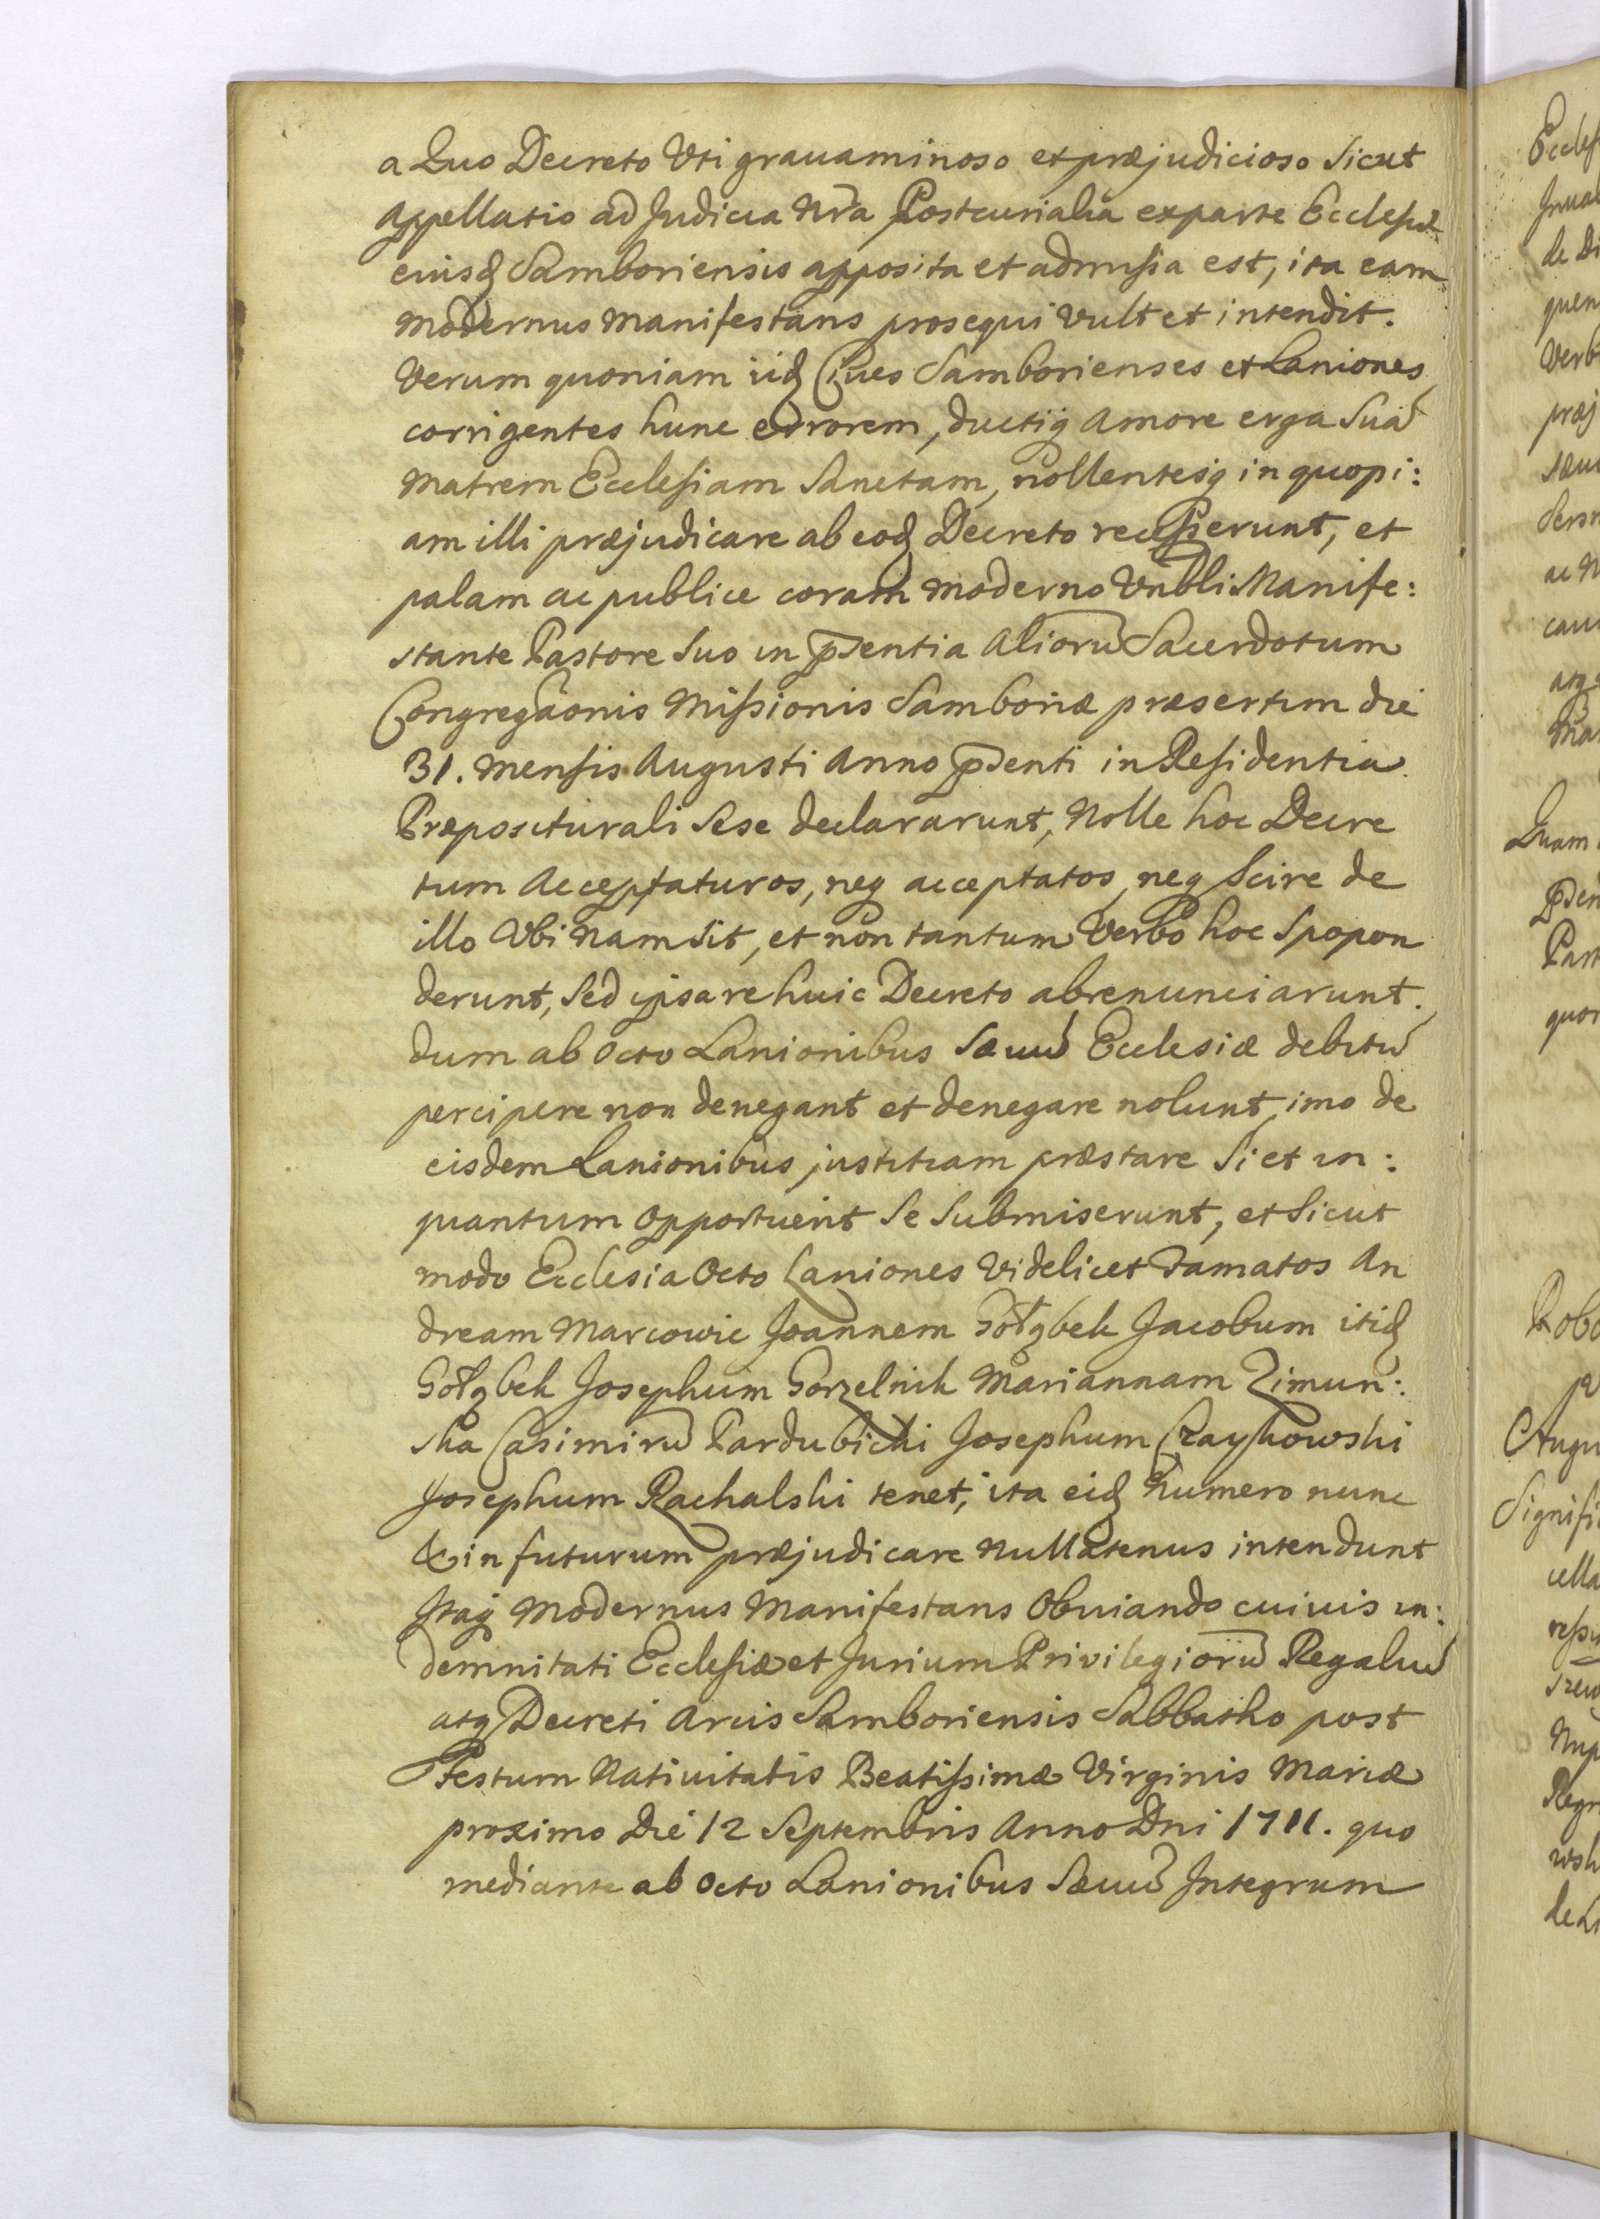 a Quo Decreto Vti grauaminoso et præjudicioso Sicut
Appellatio ad Judicia Nra Postcurialia ex parte Ecclesiæ
eiusd Samboriensis apposita et admissa est, ita eam
Modernus Manifestans prosequi Vult et intendit.
Verum quoniam iid Ciues Samborienses et Laniones
corrigentes hunc errorem, ductiq Amore erga Suā
Matrem Ecclesiam Sanctam, nollentesq in quopi:
am illi præjudicare ab eod Decreto recesserunt, et
palam ac publice coram moderno Vnbli Manife:
stante Pastore Suo in pñtia Aliorū Sacerdotum
Congregãonis Missionis Samboriæ præsertim die
31. Mensis Augusti Anno pñti in Residentia
Præpositurali Sese declararunt, Nolle hoc Decre
tum Acceptaturos, neq acceptatos, neq Scire de
illo Vbi Nam Sit, et non tantum Verbo hoc Spopon
derunt, Sed ipsa re huic Decreto abrenunciarunt.
dum ab Octo Lanionibus Sæuū Ecclesiæ debitū
percipere non denegant et denegare nolunt, imo de
eisdem Lanionibus justitiam præstare Si et in:
quantum Opportuerit Se Submiserunt, et Sicut
modo Ecclesia Octo Laniones Videlicet Famatos An
dream Marcowic Joannem Gołąbek Jacobum itid
Gołąbek Josephum Gorzelnik Mariannam Zimun:
ska Casimirū Pardubicki Josephum Czaykowski
Josephum Rachalski tenet, ita eid Numero nunc
& in futurum præjudicare Nullatenus intendunt
Itaq Modernus Manifestans Obuiando cuiuis in:
demnitati Ecclesiæ et Jurium Privilegiorū Regaliū
atq Decreti Arcis Samboriensis Sabbatho post
Festum Natiuitatis Beatissimæ Virginis Mariæ
proximo Die 12 Septembris Anno Dni 1711. quo
mediante ab Octo Lanionibus Sæuū Integrum